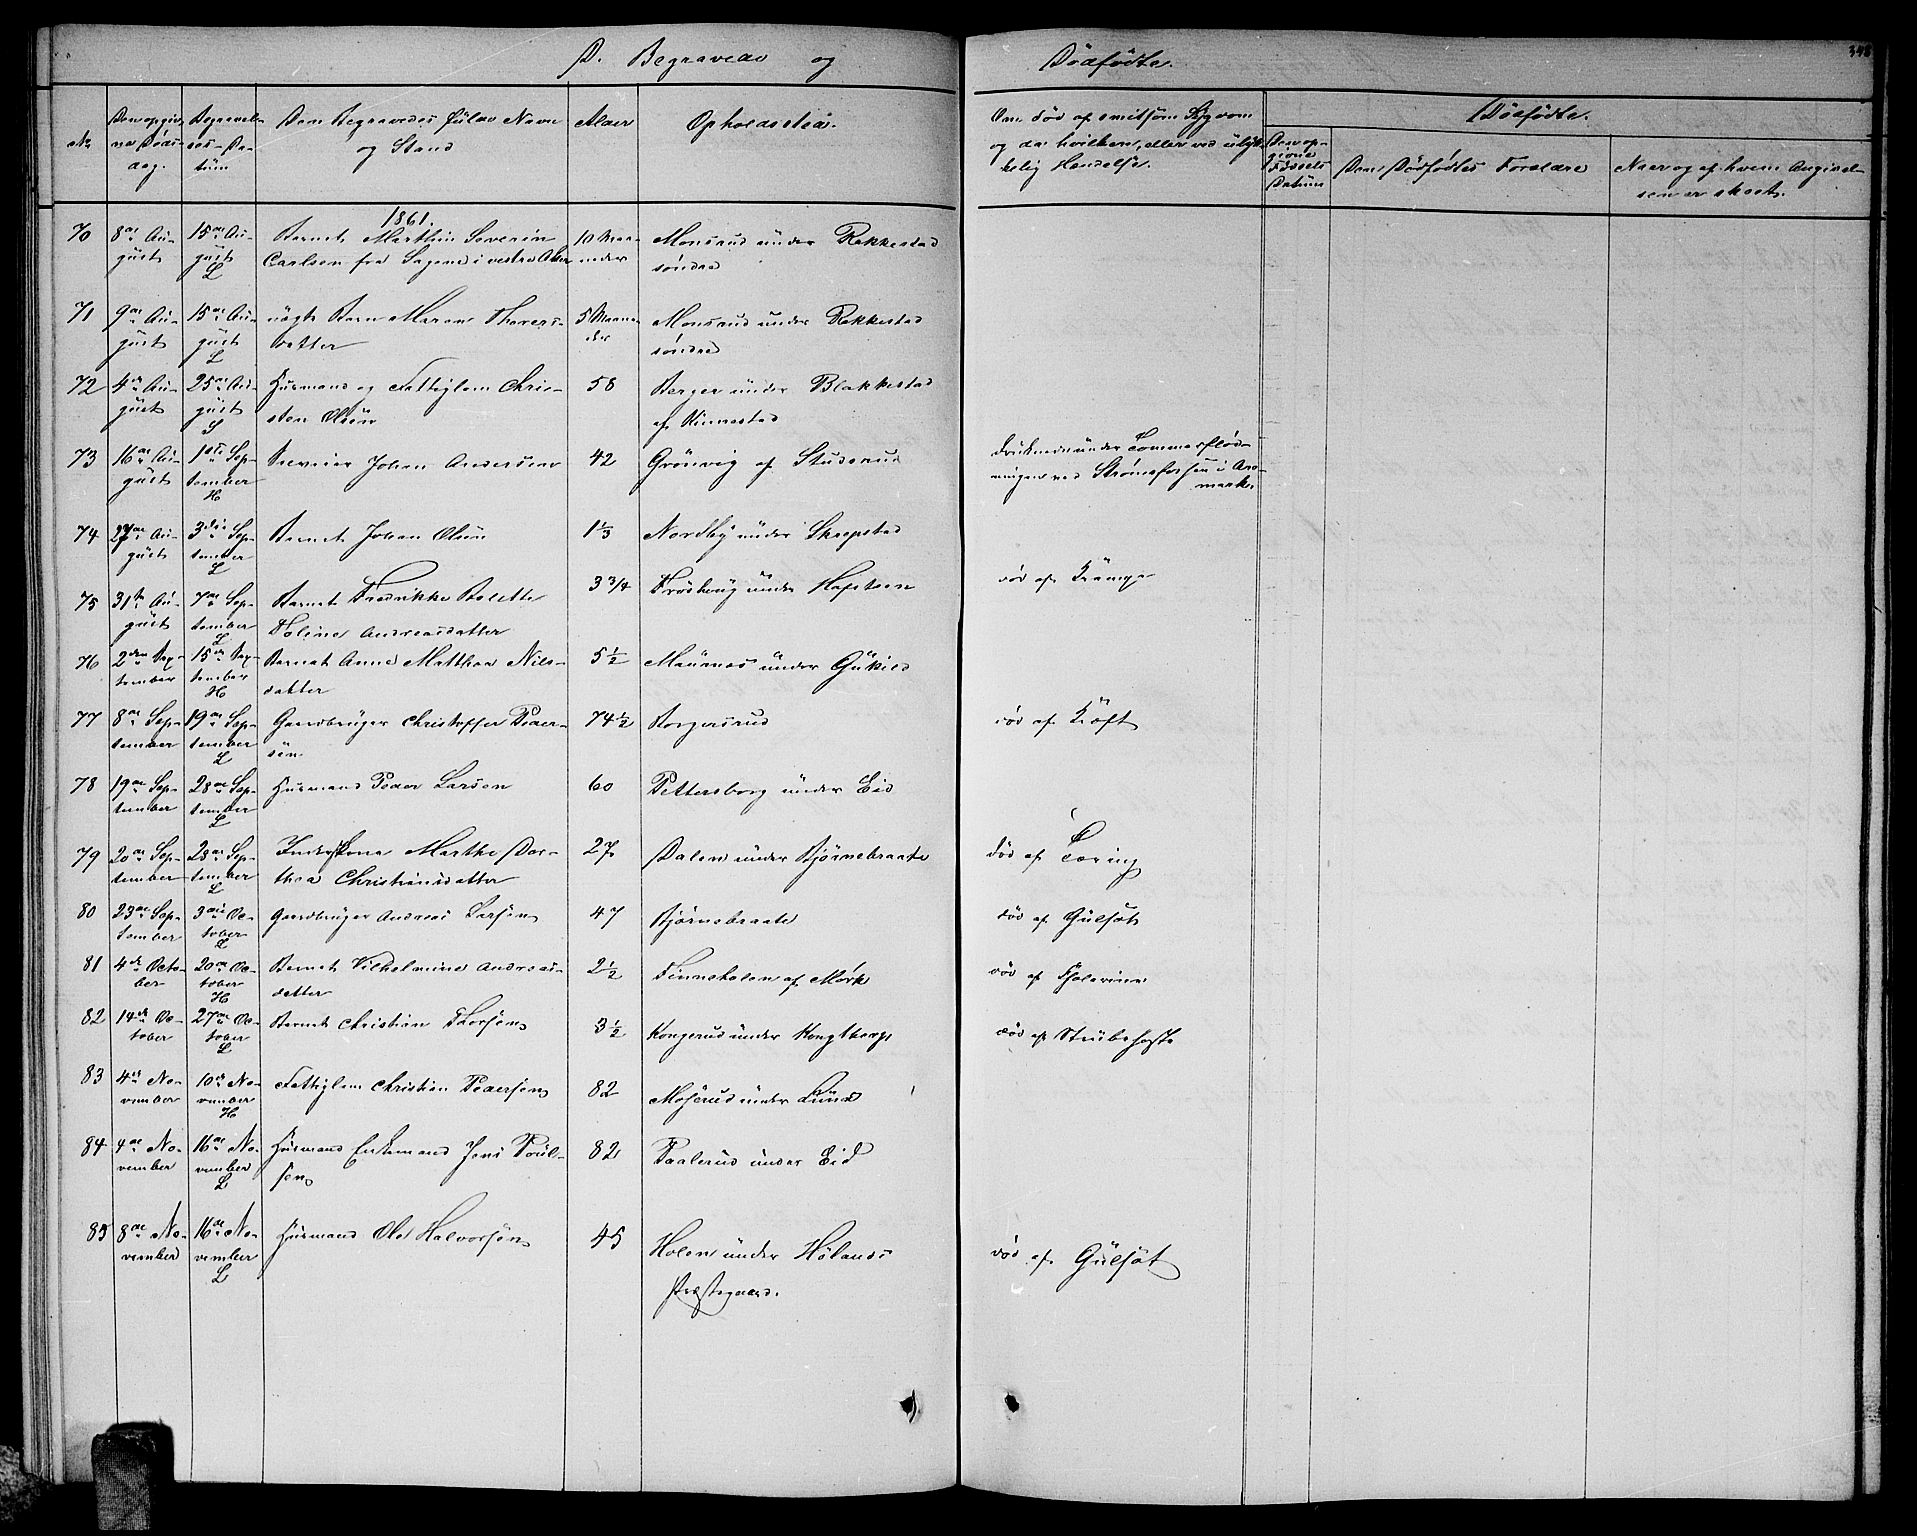 D. Begravede og Dödfödte. 348
No
Den opgivne Dödsdag.
Begravelses-Datum
Den Begravedes fulde Navn og Stand
Alder
Opholdssted.
Om död af smitsom Sygdom
og da hvilken, eller ved ulyk-
kelig Hændelse.
Dödfödte.
Den opgivne Födsels Datum
Den Dödfödtes Forældre
Naar og af hvem Angivel-
sen er skeet.
1861.
70 8de August 15de August L Barnet Marthin Severin Carlsen fra Sagene i vestre Aker 10 Maaneder Monsrud under Rakkestad söndre
71 9de August 15de August L uægte Barn Maren Thorersdatter 5 Maaneder Monsrud under Rakkestad söndre
72 4de August 25de August S Husmand og Fattiglem Christen Olsen 58 Berger under Blakkestad af Kinnestad
73 16de August 1ste September H Johan Andersen 42 Grönvig af Studsrud druknede under Tömmerflöd-
ningen ved Strömsfossen i Are-
marke
74 27de August 3die September L Barnet Johan Olsen 1 1/3 Nordby under Skrepstad
75 31te August 7de September L Barnet Fredrikke Bolette Heline Andreasdatter 3 3/4 Fröshoug under Hafsteen död af Krampe
76 2den September 15de September H Barnet Anne Mathea Nilsdatter 5 1/2 Maurnes under Gukild
77 8de September 19de September L Gaardbruger Christoffer Pedersen 74 1/2 Borgersrud död af Kræft
78 19de September 28de September L Husmand Peder Larsen 60 Pettersborg under Eid
79 20de September 28de September L Inderstkone Marthe Dorthea Christiansdatter 27 Dalen under Björnebraate död af Tæring
80 23de September 3die October L Gaardbruger Andreas Larsen 47 Björnebraate död af Gulsot
81 4de October 20de October H Barnet Vilhelmine Andreasdatter 2 1/2 Finneholen af Mörk död af Kolerine
82 14de October 27de October L Barnet Christian Thorsen 3 1/2 Kongerud under Kongtorp död af Strubehoste
83 4de November 10de November H Fattiglem Christian Pedersen 82 Moserud under Lund
84 4de November 16de November L Husmand Enkemand Jens Poulsen 82 Paalerud under Eid
85 8de November 16de November L Husmand Ole Halvorsen 45 Holen under Hölands Præstegaard. död af Gulsot